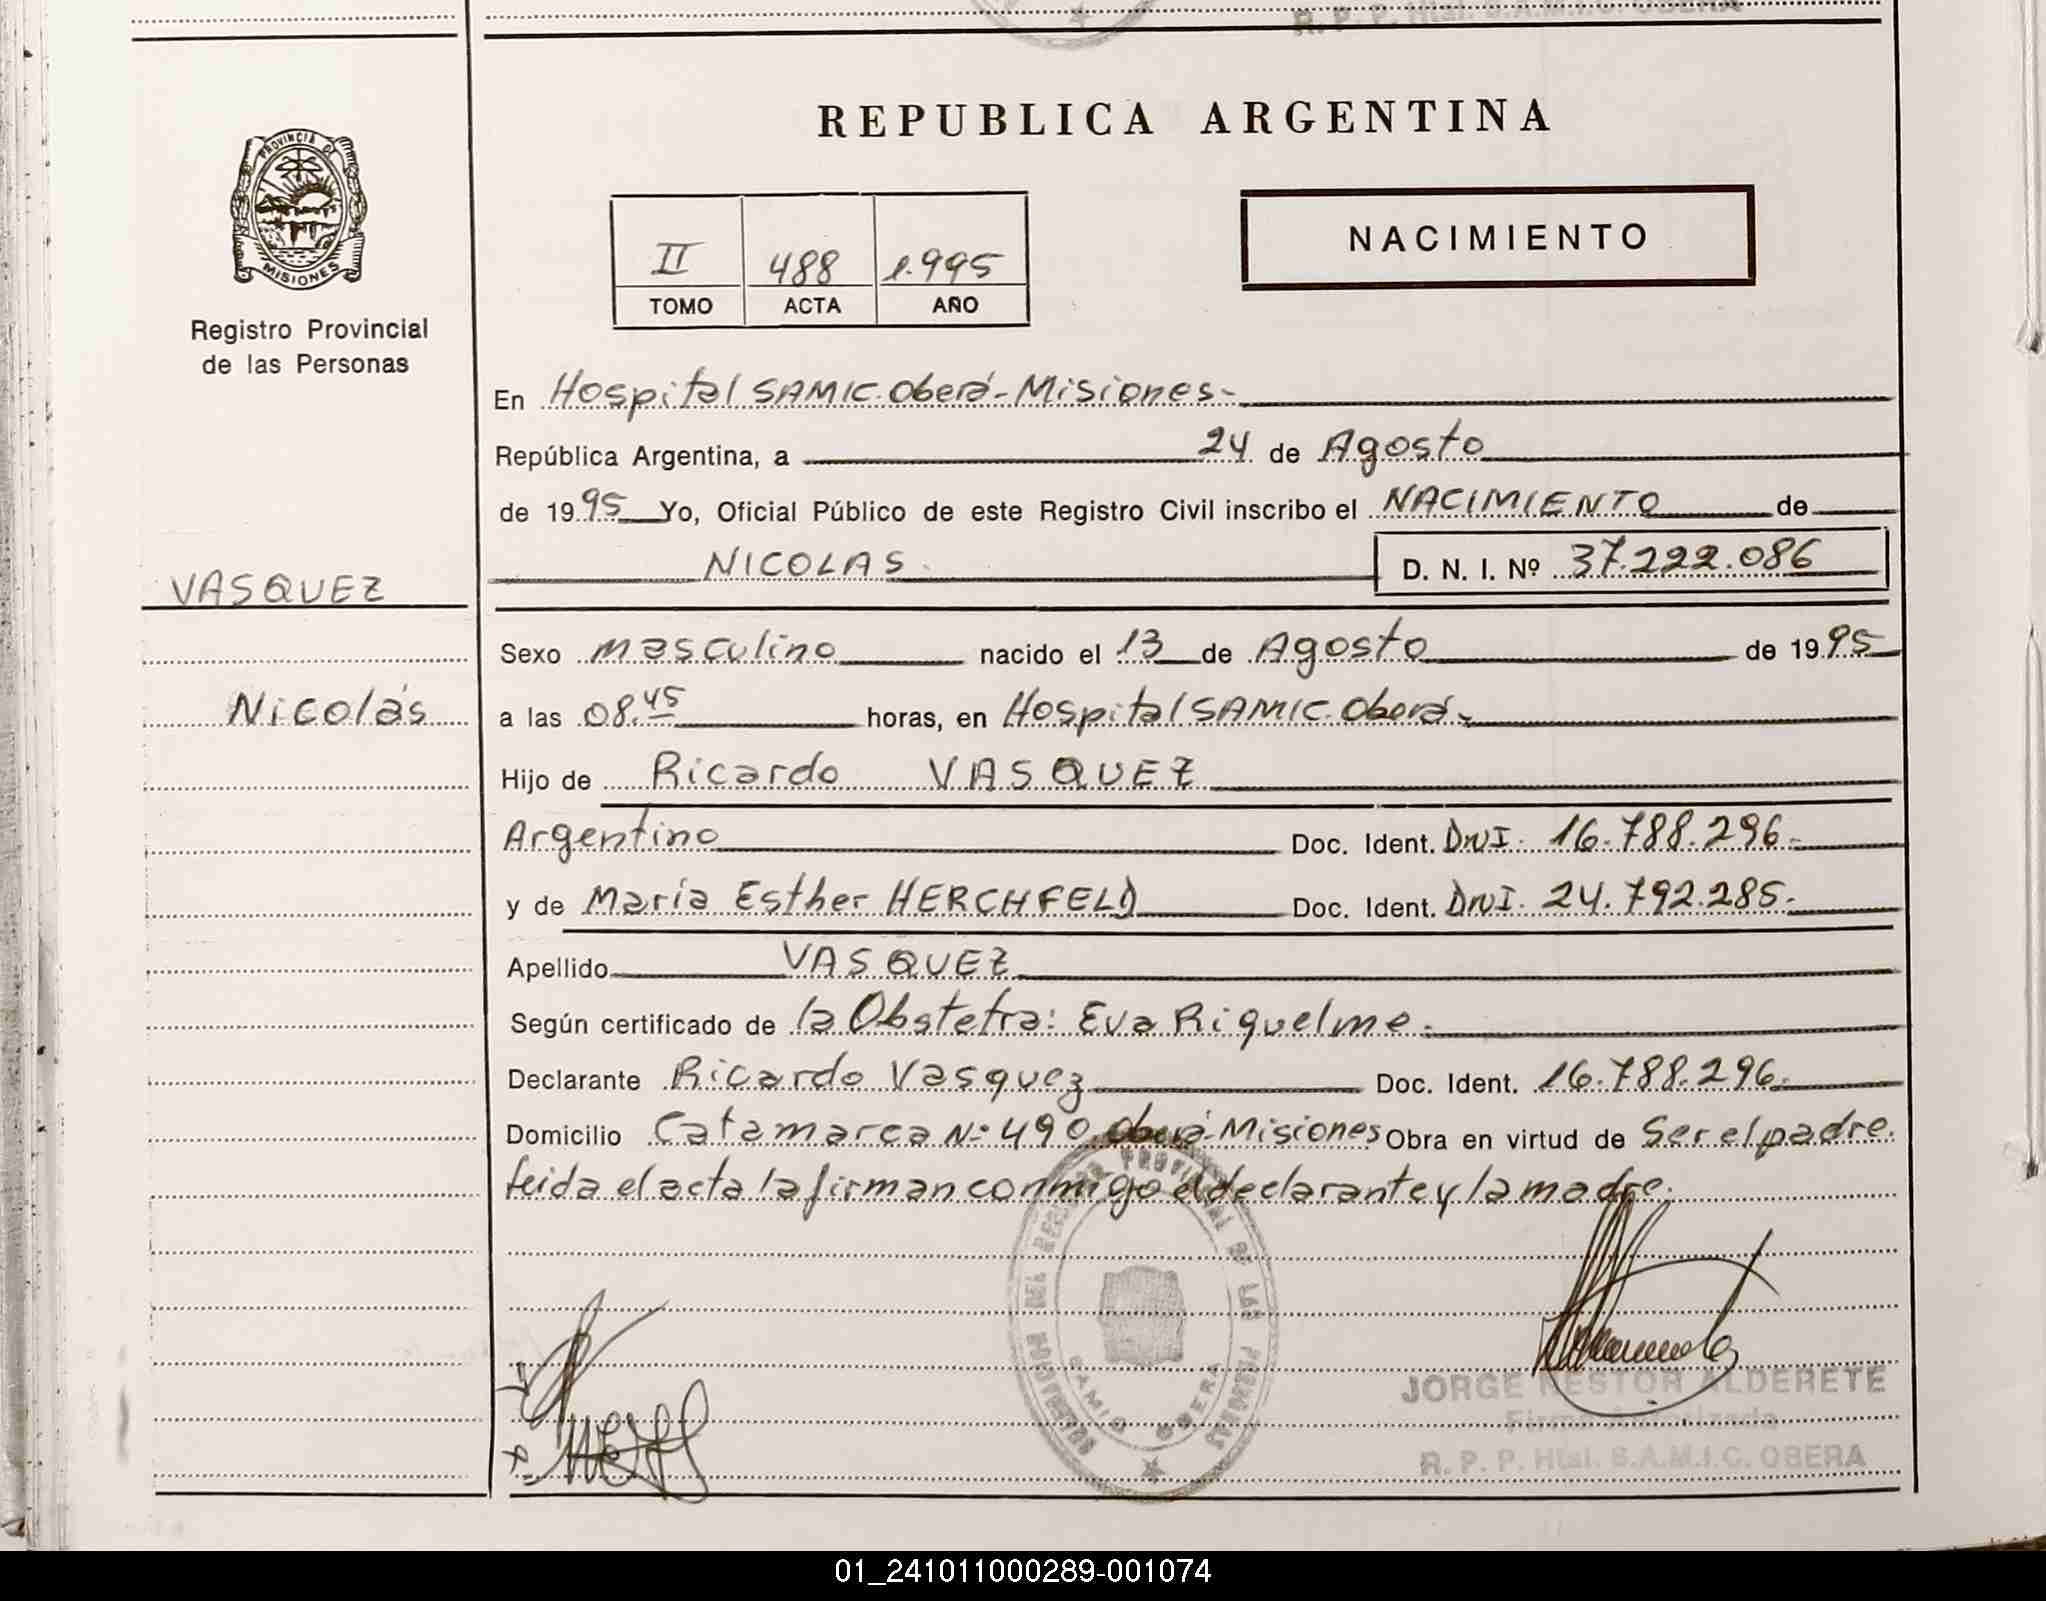 R. P. P. Htal. S.A.M.I.C. OBERA
REPUBLICA ARGENTINA
PROVINCIA DE
MISIONES
II 488 1.995
TOMO ACTA AÑO
NACIMIENTO
Registro Provincial
de las Personas
En Hospital SAMIC. Oberá - Misiones -
República Argentina, a 24 de Agosto
de 1995 Yo, Oficial Público de este Registro Civil inscribo el NACIMIENTO de
NICOLAS. D. N. I. Nº 37.222.086
VASQUEZ
Sexo masculino nacido el 13 de Agosto de 1995
Nicolás
a las 08.45 horas, en Hospital SAMIC. Oberá -
Hijo de Ricardo VASQUEZ
Argentino Doc. Ident. DNI. 16.788.296.-
y de María Esther HERCHFELD Doc. Ident. DNI. 24.792.285.-
Apellido VASQUEZ
Según certificado de la Obstetra: Eva Riquelme.-
Declarante Ricardo Vasquez Doc. Ident. 16.788.296.
Domicilio Catamarca Nº 490 Oberá - Misiones Obra en virtud de Ser el padre.
Leida el acta la firman conmigo el declarante y la madre.
DELEGACION DEL REGISTRO PROVINCIAL DE LAS PERSONAS
SAMIC OBERA
JORGE NESTOR ALDERETE
Firma Autorizada
R. P. P. Htal. S.A.M.I.C. OBERA
01_241011000289-001074